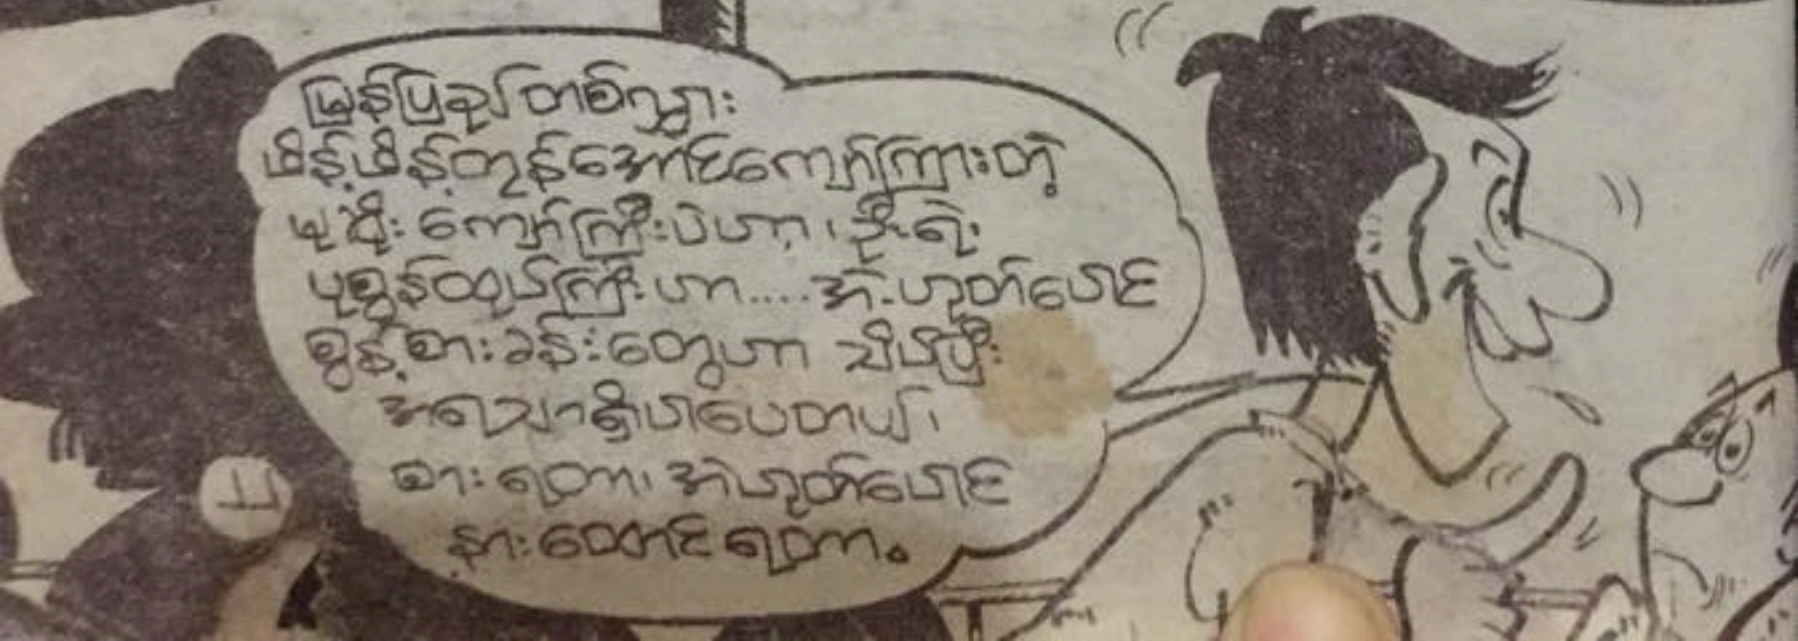 မြန်ပြည်တစ်လွှား
ဖိန့်ဖိန့်တုန်အောင်ကျော်ကြားတဲ့
ကျော်ကြီးပဲဟာ၊ ဦးရဲ့
ပုစွန်ထုပ်ကြီးဟာ.... အဲ.ဟုတ်ပေါင်
စွန့်စားခန်းတွေဟာ သိပ်ပြီး
အရသာရှိပါပေတယ်၊
စားရတာ၊ အဲဟုတ်ပေါင်
နားထောင်ရတာ။